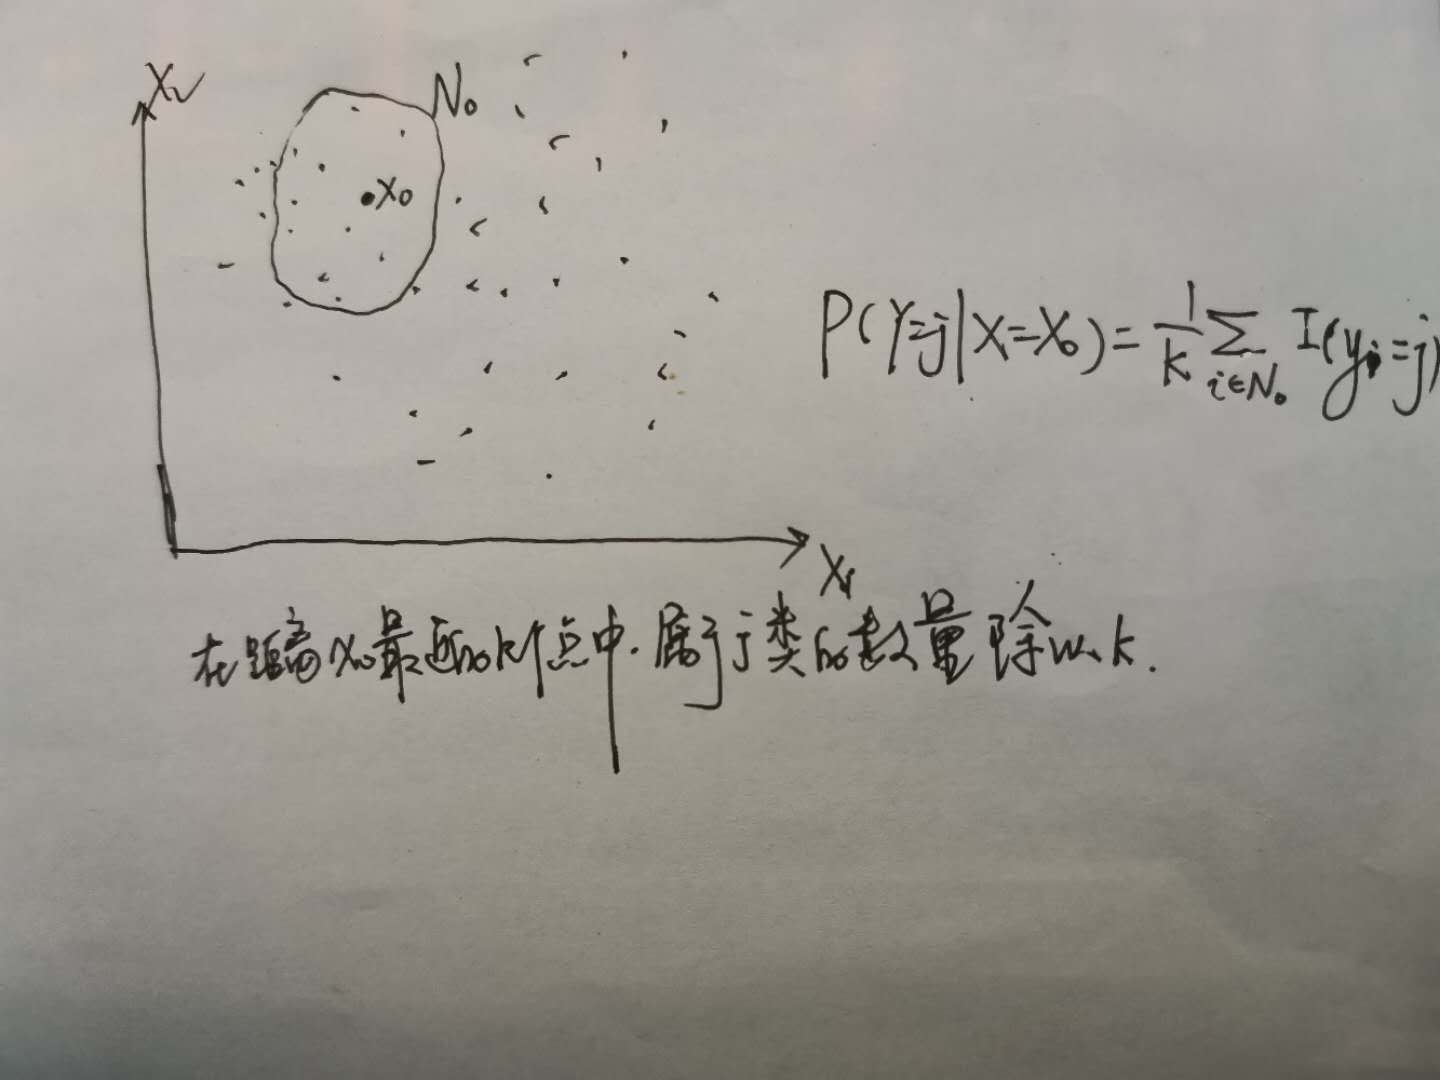 X₂
N₀
X₀
P(Y=j|X=X₀)=1/k ∑ i∈N₀ I(yᵢ=j)
X₁
在距离x₀最近的k个点中.属于j类的数量除以k.